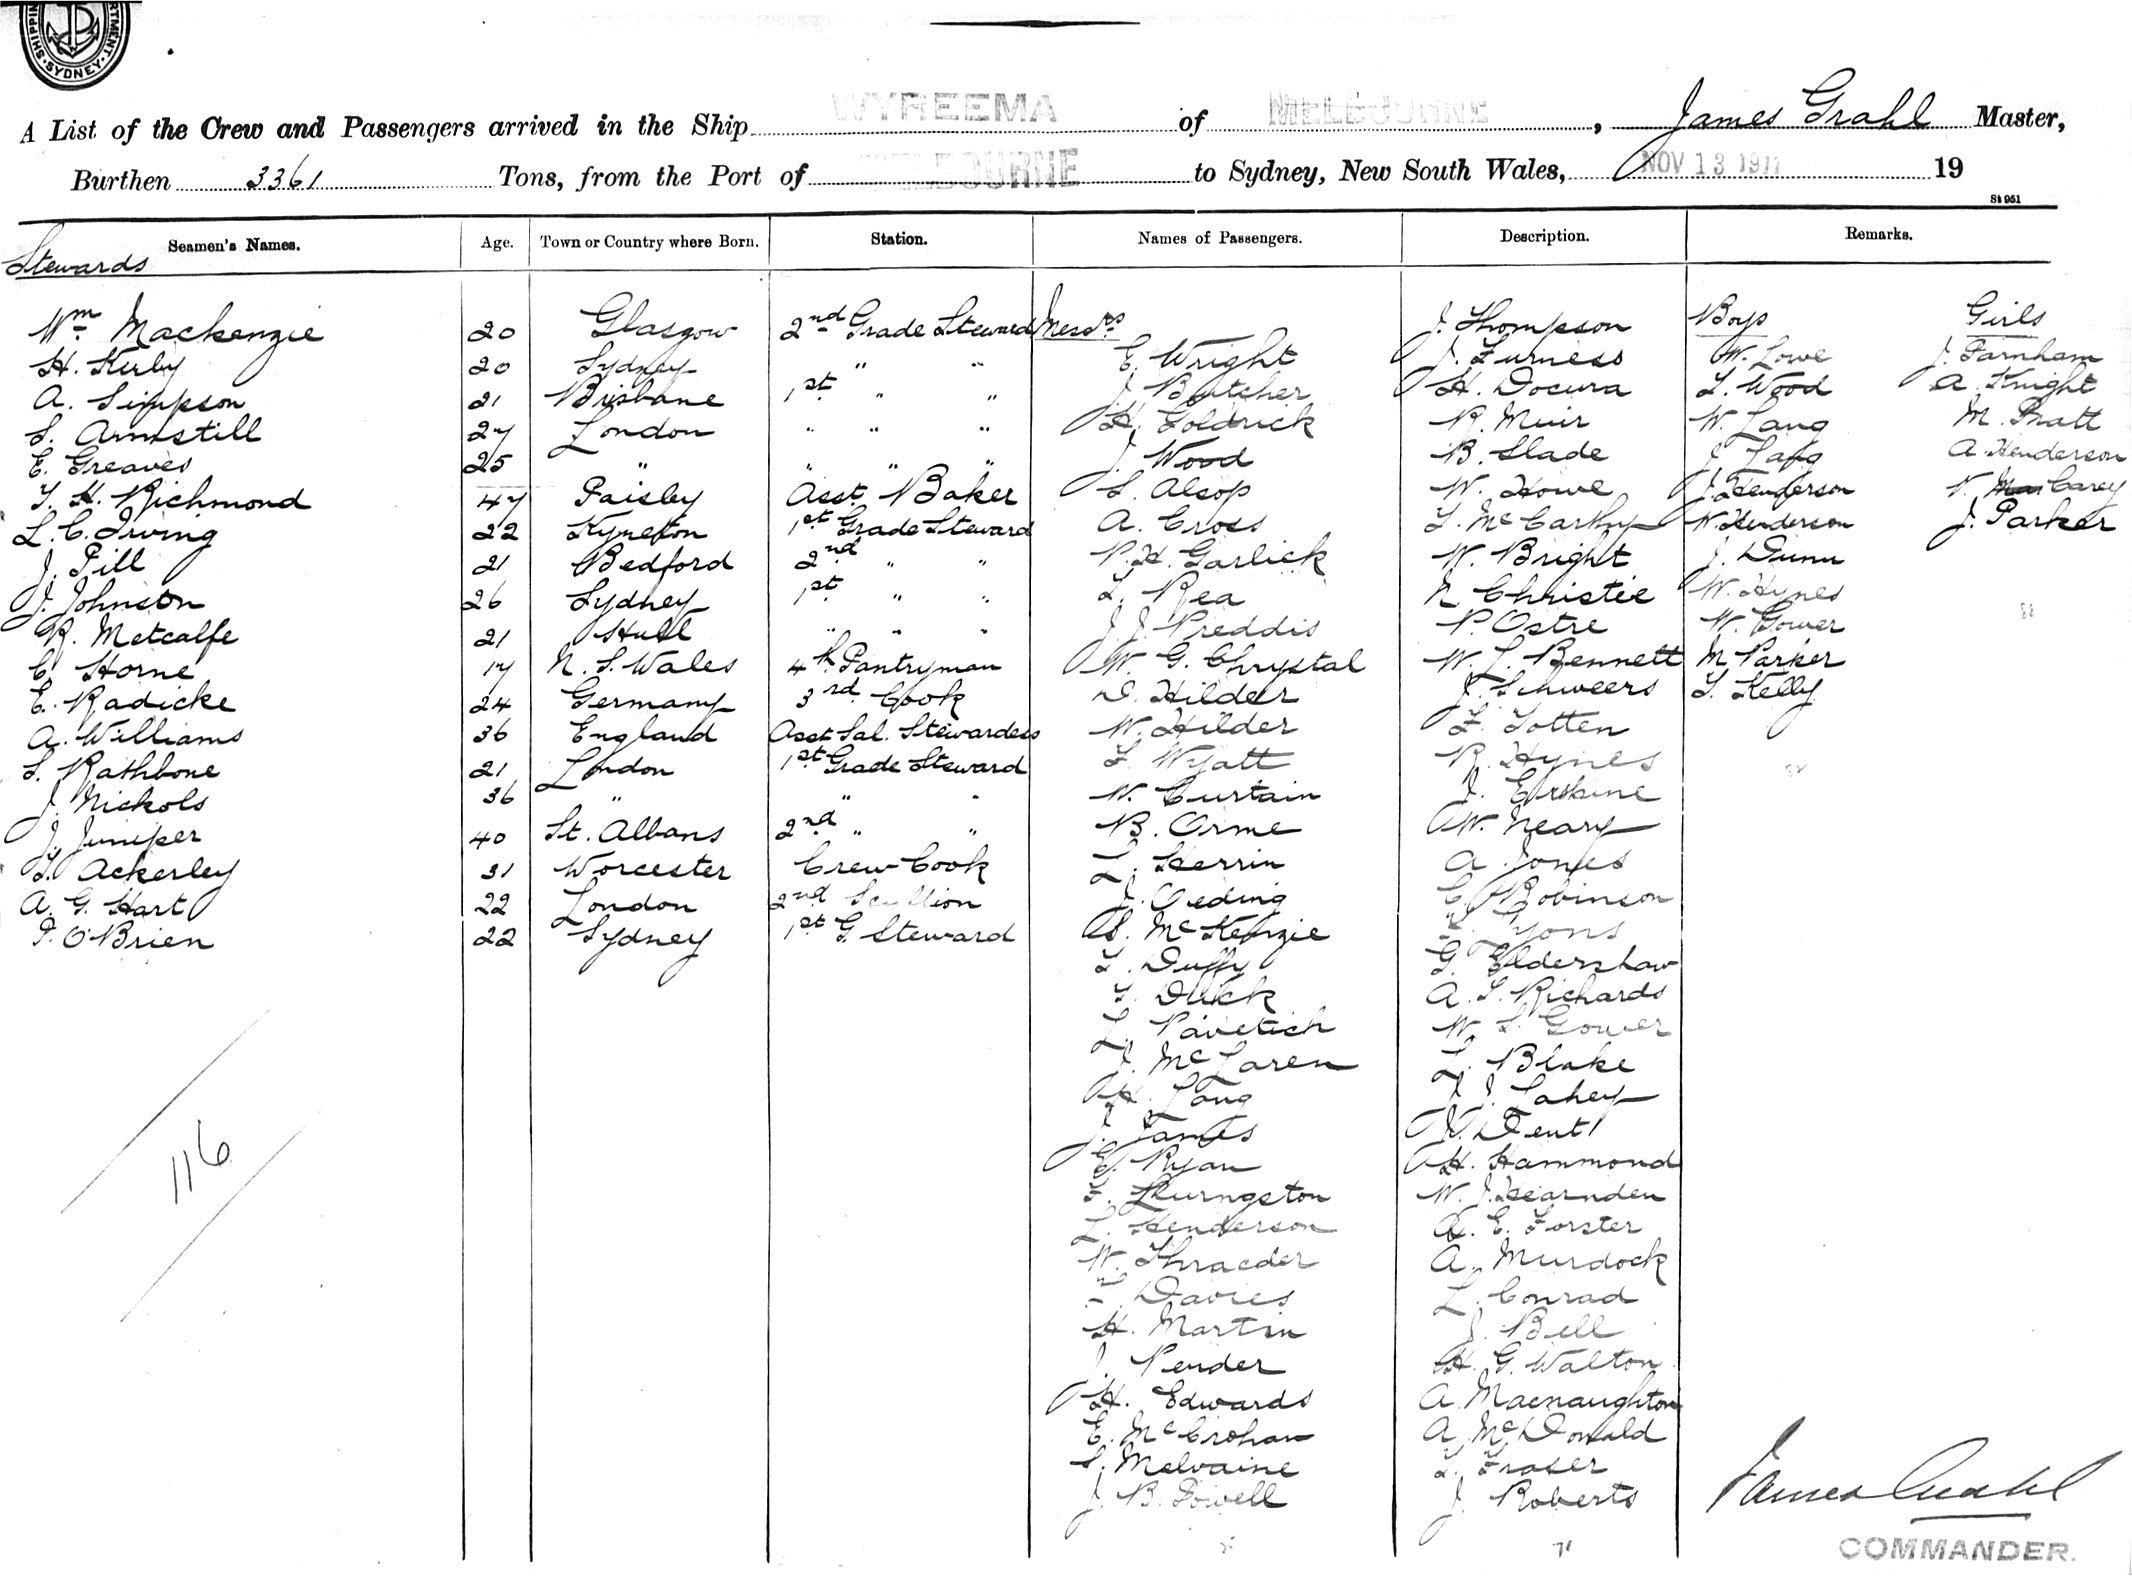 SHIPPING DEPARTMENT SYDNEY
A List of the Crew and Passengers arrived in the Ship WYREEMA of MELBOURNE, James Grahl Master,
Burthen 3361 Tons, from the Port of MELBOURNE to Sydney, New South Wales, NOV 13 1911 19
St 951
Seamen's Names. Age. Town or Country where Born. Station. Names of Passengers. Description. Remarks.
Stewards
Wm Mackenzie 20 Glasgow 2nd Grade Steward Messrs J. Thompson Boys Girls
H. Kirby 20 Sydney " " E. Wright J. Furness W. Lowe J. Farnham
A. Simpson 21 Brisbane 1st " " J. Butcher H. Docura L. Wood A. Knight
S. Armstill 27 London " " " H. Goldrick R. Muir W. Lang M. Pratt
E. Greaves 25 " " " " J. Wood B. Slade J. Lang A. Henderson
T. H. Richmond 47 Paisley Asst. Baker S. Alsop W. Howe J. Henderson Carey
L. C. Irving 22 Kyneton 1st Grade Steward A. Cross T. McCarthy W. Henderson J. Parker
J. Pill 21 Bedford 2nd " " P. H. Garlick W. Bright J. Dunn
J. Johnson 26 Sydney 1st " " T. Rea N Christie W. Hynes
R. Metcalfe 21 Hull " " " J. J. Preddis P. Ostre W. Gower
C. Horne 17 N. S. Wales 4th Pantryman W. G. Chrystal W. L. Bennett M Parker
E. Radicke 24 Germany 3rd Cook D. Hilder J. Schweers T. Kelly
A. Williams 36 England Asst Sal. Stewardess W. Hilder F. Totten
S. Rathbone 21 London 1st Grade Steward F. Wyatt R. Hynes
J. Nickols 36 " " " W. Curtain J. Erskine
J. Juniper 40 St. Albans 2nd " " B. Orme W. Neary
T. Ackerley 31 Worcester Crew Cook L. Herrin A. Jones
A. G. Hart 22 London 2nd Scullion J. Oeding C. Robinson
P. O'Brien 22 Sydney 1st G. Steward McKenzie Lyons
T. Duffy G. Eldershaw
T. Duck A. S. Richards
L. Pavetich W. S. Gower
J. McLaren L. Blake
H. Lang J. J. Lahey
J. James Dent
E. Ryan H. Hammond
Livingston W. J. Hearnden
L. Henderson A. E. Forster
W. Thraeder A. Murdock
Davies L. Conrad
H. Martin J. Bell
J. Pender H. G. Walton
H. Edwards A. Macnaughton
E. McCrohan A. McDonald
S. Melvaine T. Fraser
J. B. Powell J. Roberts
116
71
James Grahl
COMMANDER.